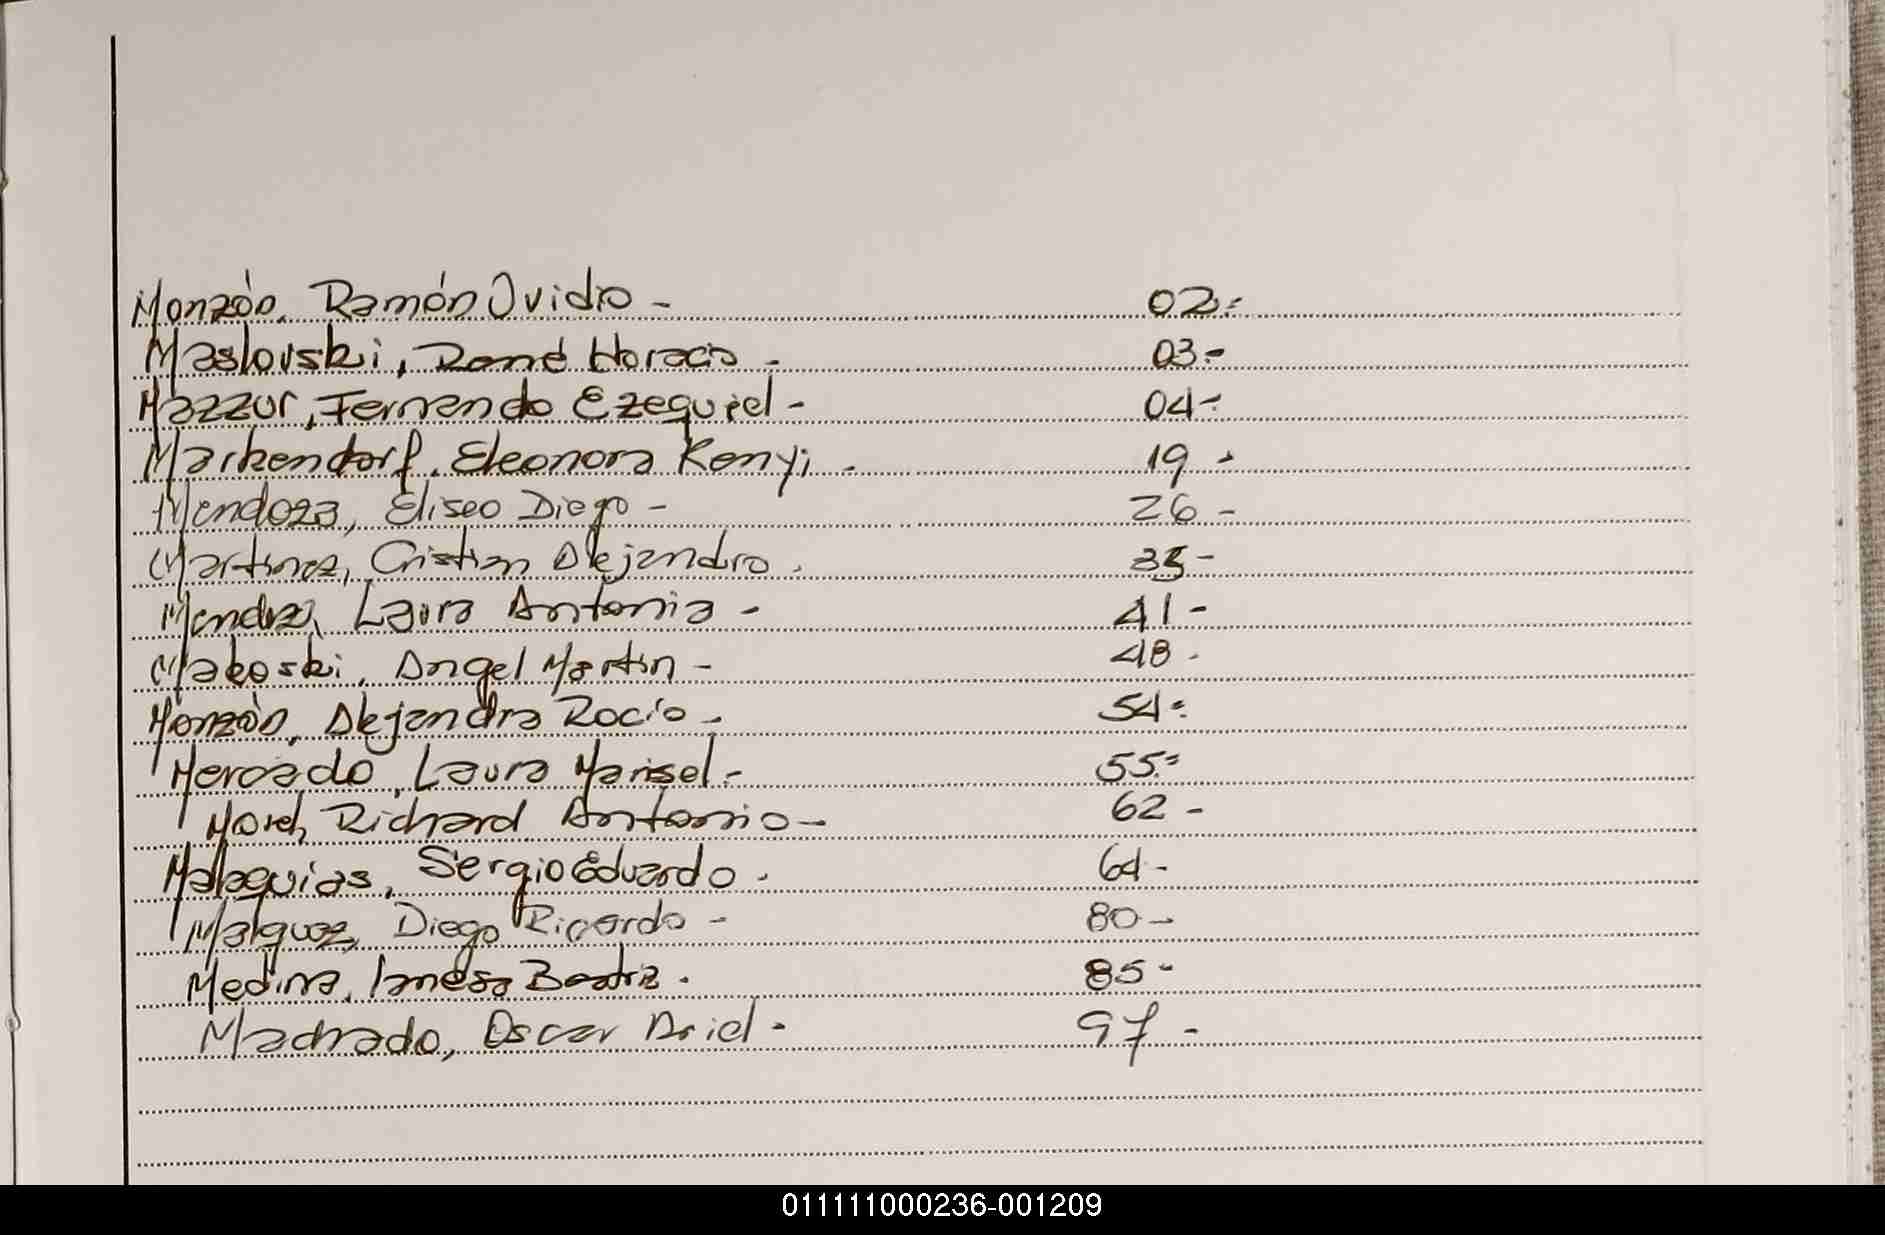 Monzón, Ramón Ovidio - 02.-
Maslovski, René Horacio - 03.-
Mazzur, Fernando Ezequiel - 04.-
Markendorf, Eleonora Kenyi - 19 -
Mendoza, Eliseo Diego - 26 -
Martinez, Cristian Alejandro. 35 -
Laura Antonia - 41 -
Makoski, Angel Martin - 48 -
Monzón, Alejandra Rocío - 54.-
Mercado, Laura Marisel - 55.-
Richard Antonio - 62 -
Malaquias, Sergio Eduardo. 64 -
Diego Ricardo - 80 -
Medina, Beatriz. 85 -
Machado, Oscar Ariel - 97 -
011111000236-001209